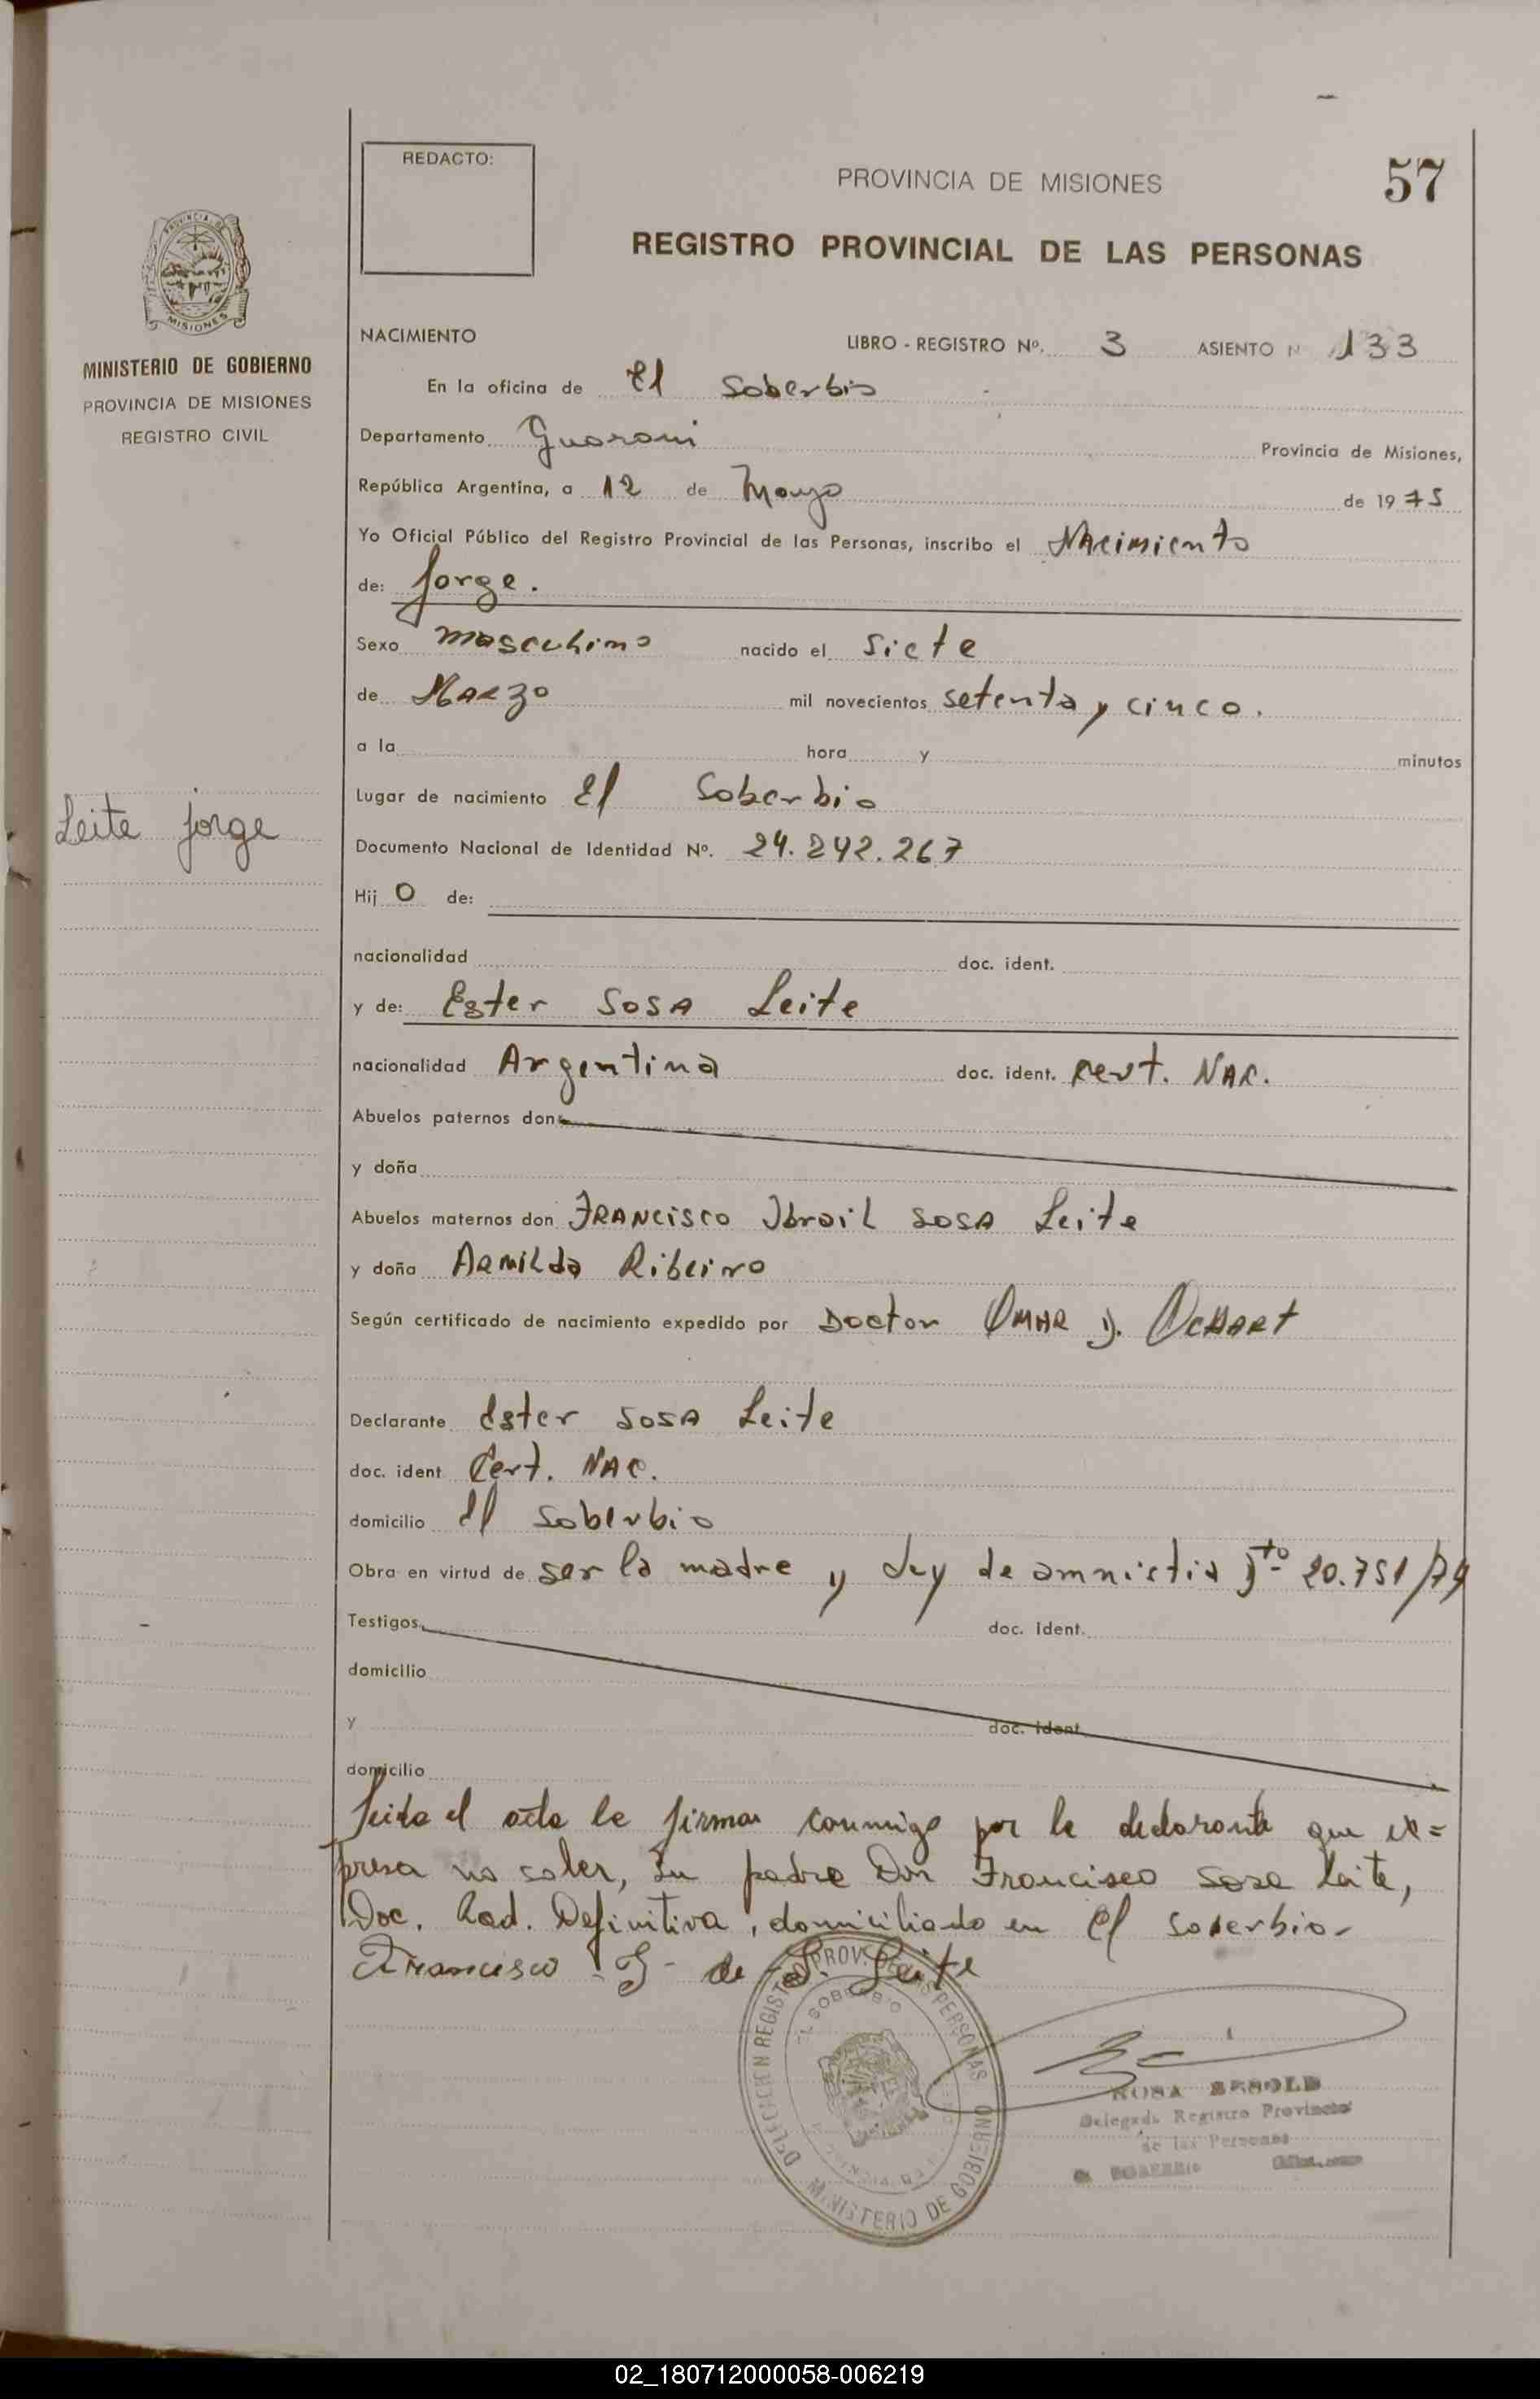 REDACTO:
PROVINCIA DE MISIONES
57
REGISTRO PROVINCIAL DE LAS PERSONAS
MISIONES
MINISTERIO DE GOBIERNO
PROVINCIA DE MISIONES
REGISTRO CIVIL
Leite jorge
NACIMIENTO LIBRO - REGISTRO Nº. 3 ASIENTO N 133
En la oficina de El Soberbio
Departamento Guarani Provincia de Misiones,
República Argentina, a 12 de Mayo de 1975
Yo Oficial Público del Registro Provincial de las Personas, inscribo el Nacimiento
de: Jorge.
Sexo masculino nacido el siete
de Marzo mil novecientos setenta y cinco.
a la hora y minutos
Lugar de nacimiento El Soberbio
Documento Nacional de Identidad Nº. 24.242.267
Hijo de:
nacionalidad doc. ident.
y de: Ester Sosa Leite
nacionalidad Argentina doc. ident. Cert. Nac.
Abuelos paternos don
y doña
Abuelos maternos don Francisco Ibrail Sosa Leite
y doña Armilda Ribeiro
Según certificado de nacimiento expedido por Doctor Omar D. Ochart
Declarante Ester Sosa Leite
doc. ident Cert. Nac.
domicilio El Soberbio
Obra en virtud de ser la madre y Ley de amnistia Dto 20.751/74
Testigos doc. ident.
domicilio
y doc. ident
domicilio
Leida el acta la firma conmigo por la declarante que ex=
presa no saber, su padre Don Francisco Sosa Leite,
Doc. Rad. Definitiva, domiciliado en El Soberbio-
Francisco I- de S. Leite
DELEGACION REGISTRO PROV. DE LAS PERSONAS
EL SOBERBIO
MINISTERIO DE GOBIERNO
ROSA
Delegada Registro Provincial
de las Personas
EL SOBERBIO
02_180712000058-006219